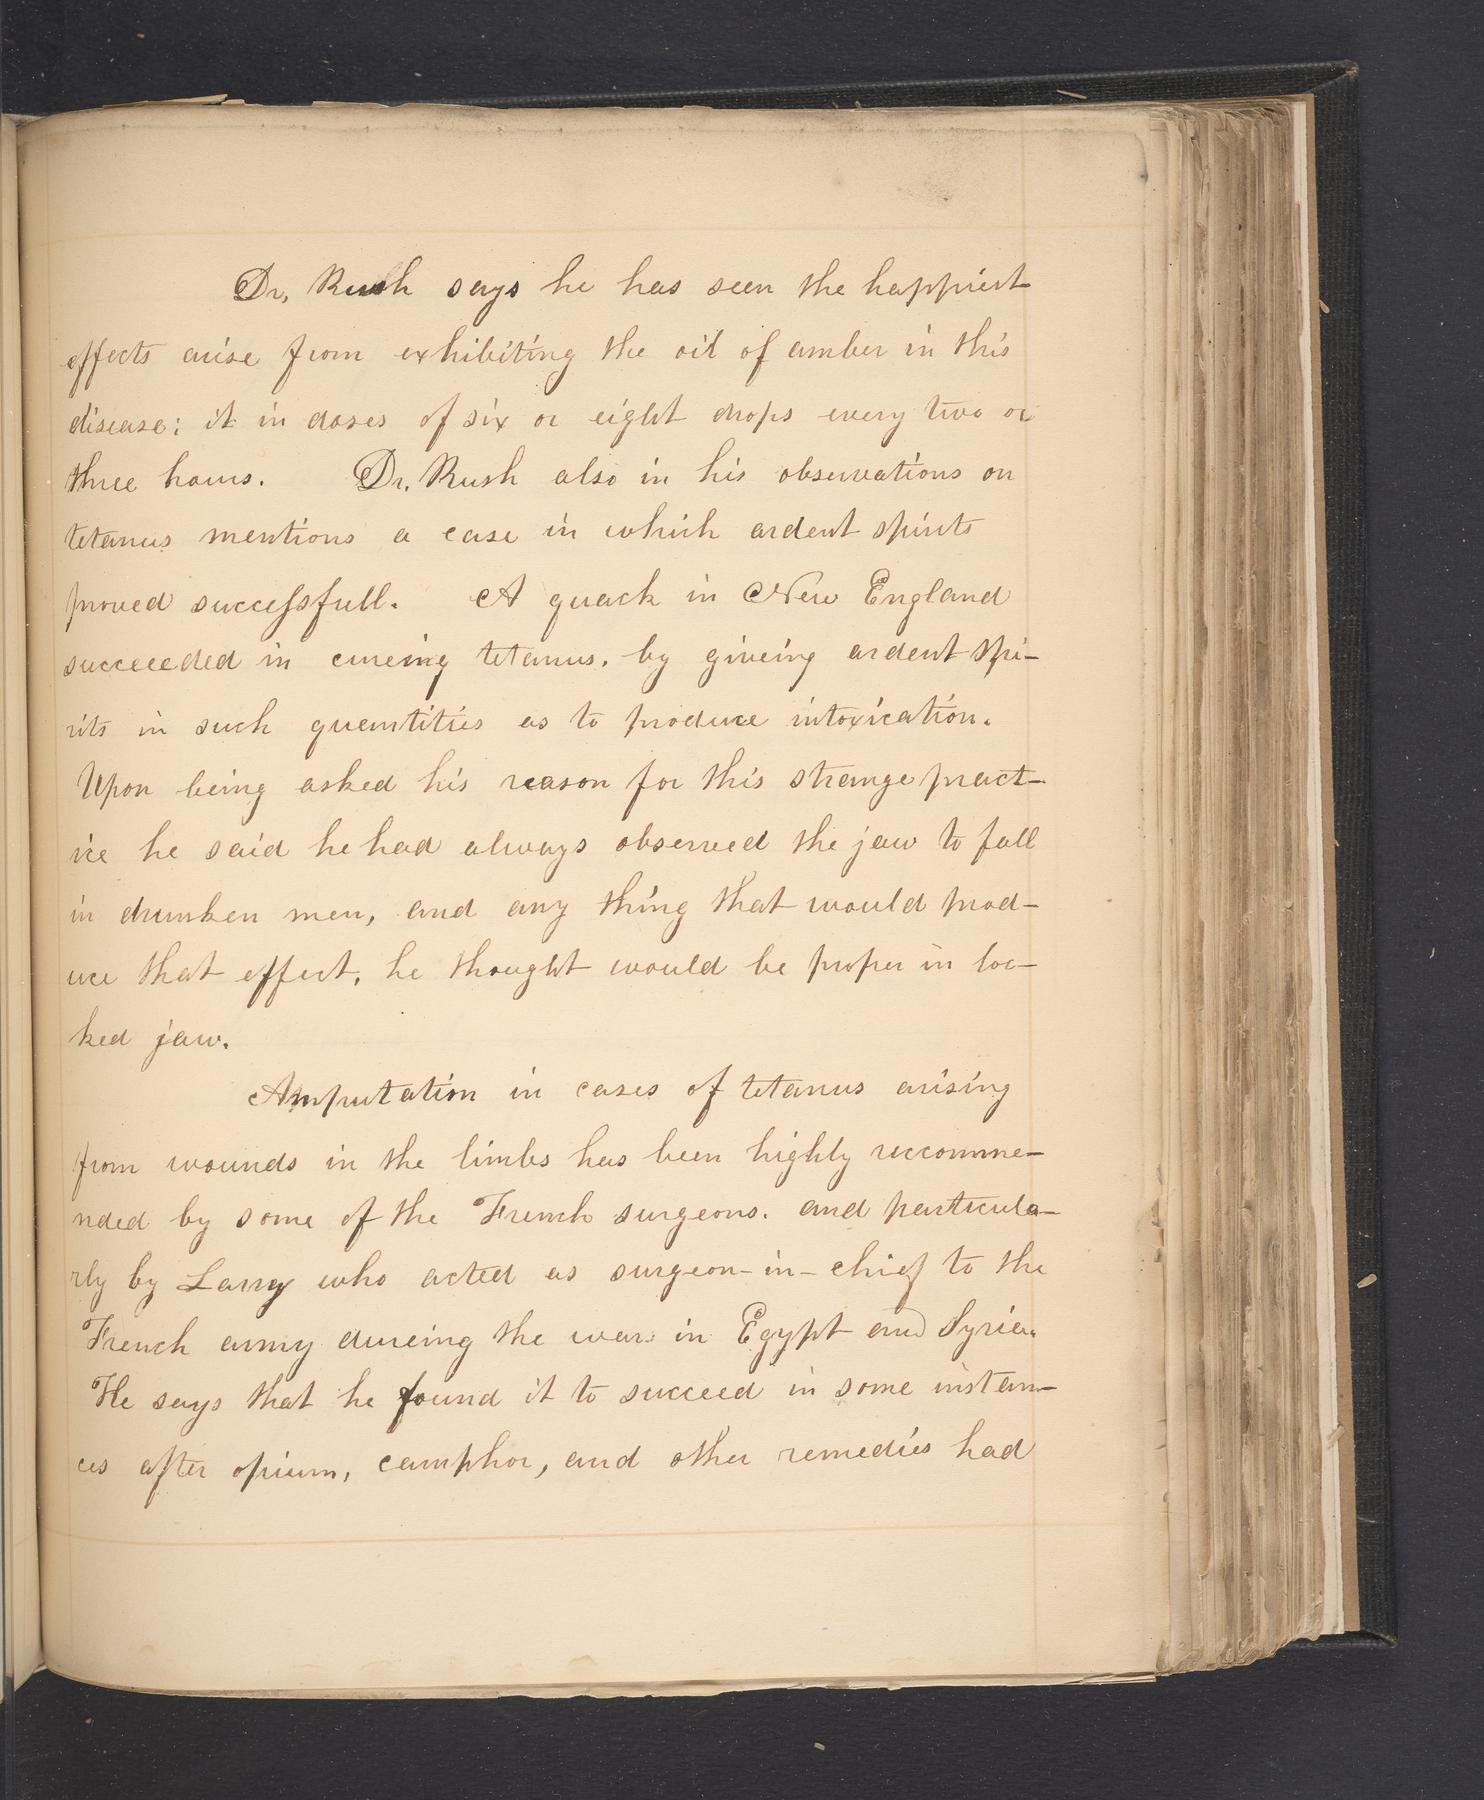 Dr. Rush says he has seen the happiest
effects arise from exhibiting the oil of amber in this
disease; it in doses of six or eight drops every two or
three hours. Dr. Rush also in his observations on
tetanus mentions a case in which ardent spirits
proved successfull. A quack in New England
succeeeded in cureing tetanus. by giveing ardent spi-
rits in such quantities as to produce intoxication.
Upon being asked his reason for this strange pract-
ice he said he had always observed the jaw to fall
in drunken men, and any thing that would prod-
uce that effect, he thought would be proper in loc-
ked jaw.
Amputation in cases of tetanus arising
from wounds in the limbs has been highly reccomme-
nded by some of the French surgeons. and particula-
rly by Larry who acted as surgeon-in-chief to the
French army dureing the war in Egypt and Syria.
He says that he found it to succeed in some instan-
ces after opium, camphor, and other remedies had